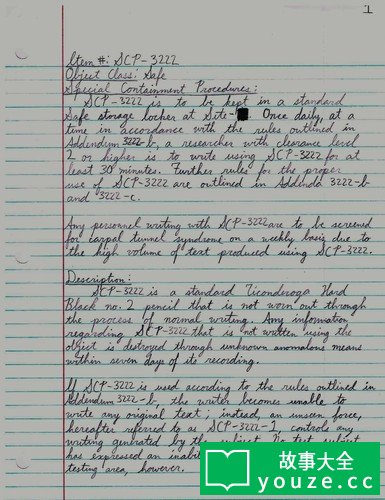 1
Item #: SCP-3222
Object Class: Safe
Special Containment Procedures:
SCP-3222 is to be kept in a standard
Safe storage locker at Site-█. Once daily, at a
time in accordance with the rules outlined in
Addendum 3222-b, a researcher with clearance level
2 or higher is to write using SCP-3222 for at
least 30 minutes. Further rules for the proper
use of SCP-3222 are outlined in Addenda 3222-b
and 3222-c.
Any personnel writing with SCP-3222 are to be screened
for carpal tunnel syndrome on a weekly basis due to
the high volume of text produced using SCP-3222.
Description:
SCP-3222 is a standard Ticonderoga Hard
Black no. 2 pencil that is not worn out through
the process of normal writing. Any information
regarding SCP-3222 that is not written using the
object is destroyed through unknown anomalous means
within seven days of its recording.
If SCP-3222 is used according to the rules outlined in
Addendum 3222-b, the writer becomes unable to
write any original text; instead, an unseen force,
hereafter referred to as SCP-3222-1, controls any
writing generated by the subject. No test subject
has expressed an inabil
testing area, however.
故事大全
youze.cc